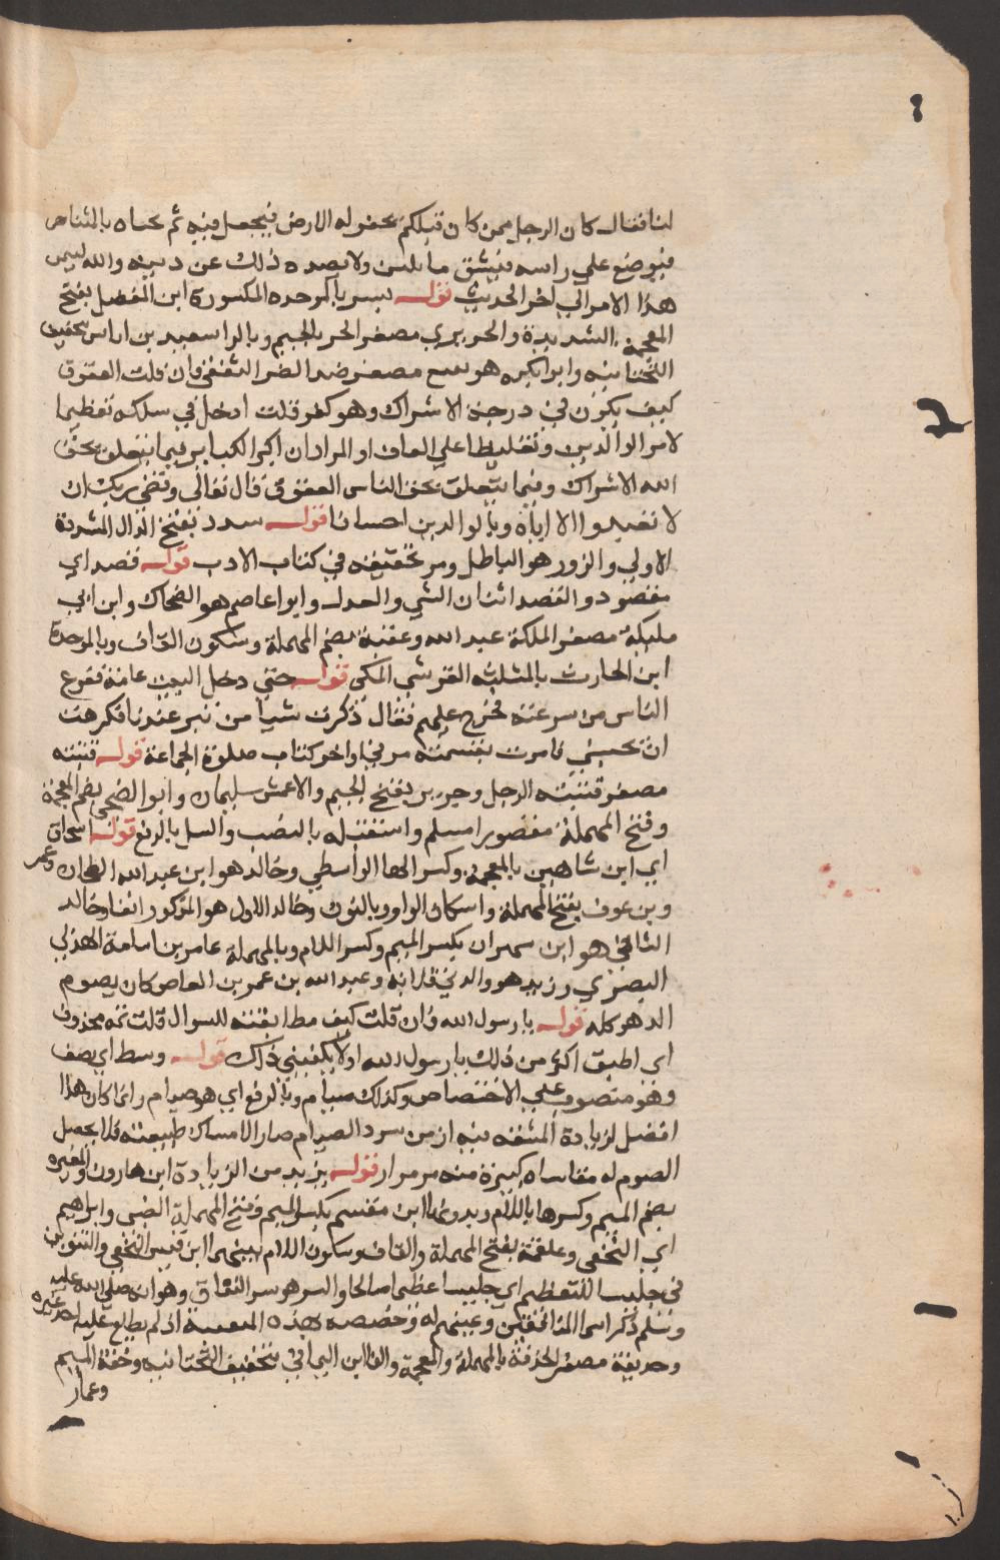 لنا فقال كان الرجل ممن كان قبلكم يحفر له الارض فيجعل فيه ثم يجاه بالمنشار
فيوضع علي راسه فيشق ما يلين ولا يصده ذلك عن دينه والله ليتمن
هذا الامر الي اخر الحديث قوله بسر بالموحده المكسورة ابن المفضل بفتح
المعجمة الشديدة والجريري مصغر الجر بالجيم وبالرا سعيد بن اياس بتخفيف
التحتانيه وابو ابكره هو نفيع مصغر ضد الضر الثقفي فان قلت العقوق
كيف يكون في درجة الاشراك وهو كفر قلت ادخل في سلكه تعظيما
لامر الوالدين وتغليظا علي العاق او المراد ان اكبر الكباير فيما يتعلق بحق
الله الاشراك وفيما يتعلق بحق الناس العقوق قال تعالي وقضي ربك ان
لا تعبدوا الا اياه وبالوالدين احسانا قوله سدد بفتح الدال المشددة
الاولي والزور هو الباطل ومر تحقيقه في كتاب الادب قوله قصد اي
مقصود والقصد اتيان الشي والعدل وابو عاصم هو الضحاك وابن ابي
مليكة مصغر الملكة عبد الله وعقبة بضم المهملة وسكون القاف وبالموحدة
ابن الحارث بالمثلثه القرشي المكي قوله حتي دخل البيت عامة ففزع
الناس من سرعته فخرج عليهم فقال ذكرت شيا من تبر عندنا فكرهت
ان يحبسني فامرت بقسمته مر في اواخر كتاب صلوة الجماعة قوله قتيبه
مصغر قتبة الرجل وجرير بفتح الجيم والاعمش سليمان وابو الضحي بضم المعجمة
وفتح المهملة مقصورا مسلم واستفتله بالنصب والسل بالرفع قوله اسحاق
اي ابن شاهين بالمعجمة وكسر الها الواسطي وخالد هو ابن عبد الله الطحان وعمر
وبن عوف بفتح المهملة واسكان الواو وبالنون وخالد الاول هو المذكور انفا وخالد
الثاني هو ابن مهران بكسر الميم وكسر اللام وبالمهملة عامر بن اسامة الهذلي
البصري وزيد هو والد ابي قلابه وعبد الله بن عمرو بن العاص كان يصوم
الدهر كله قوله يا رسول الله فان قلت كيف مطابقته للسوال قلت تمه محذوف
اي اطيق اكثر من ذلك يا رسول الله او لا يكفيني ذاك قوله وسط اي نصف
وهو منصوب علي الاختصاص وكذلك صيام وبالرفع اي هو صيام وانما كان هذا
افضل لزيادة المشقه فيه اذ من سرد الصيام صار الامساك طبيعته فلا يحصل
الصوم له مقاساه كبيرة منه مر مرار قوله يزيد من الزيادة ابن هارون والمغيره
بضم الميم وكسرها باللام وبدونها ابن مقسم بكسر الميم وفتح المهملة الضبي وابراهيم
اي النخعي وعلقمة بفتح المهملة والقاف وسكون اللام بينهما ابن قيس النخعي والتنوين
في جليسا للتعظيم اي جليسا عظيما صالحا والسر هو سر النفاق وهو انه صلي الله عليه
وسلم ذكر اسما المنافقين وعينهم له وخصصه بهذه المنقبة اذ لم يطلع عليه احد غيره
وحذيفة مصغر الحذفة بالمهملة والمعجمة والفا ابن اليماني بتخفيف التحتانيه وخفة الميم
وعمار